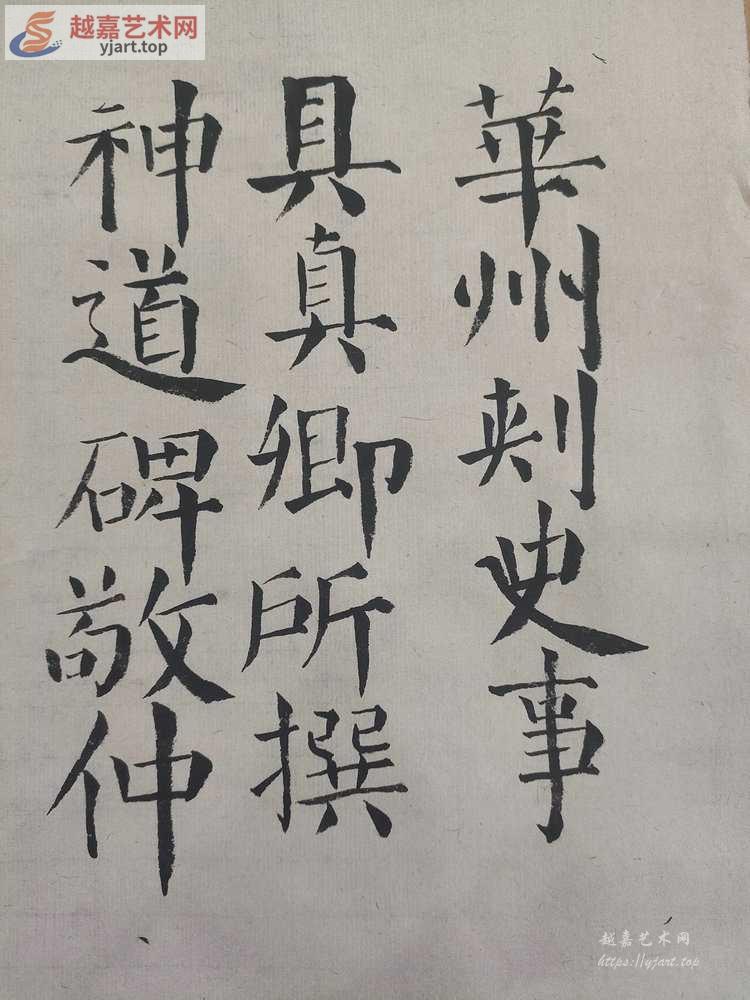 越嘉艺术网
yjart.top
華州刾史事
具真卿所撰
神道碑敬仲
越嘉艺术网
https://yjart.top